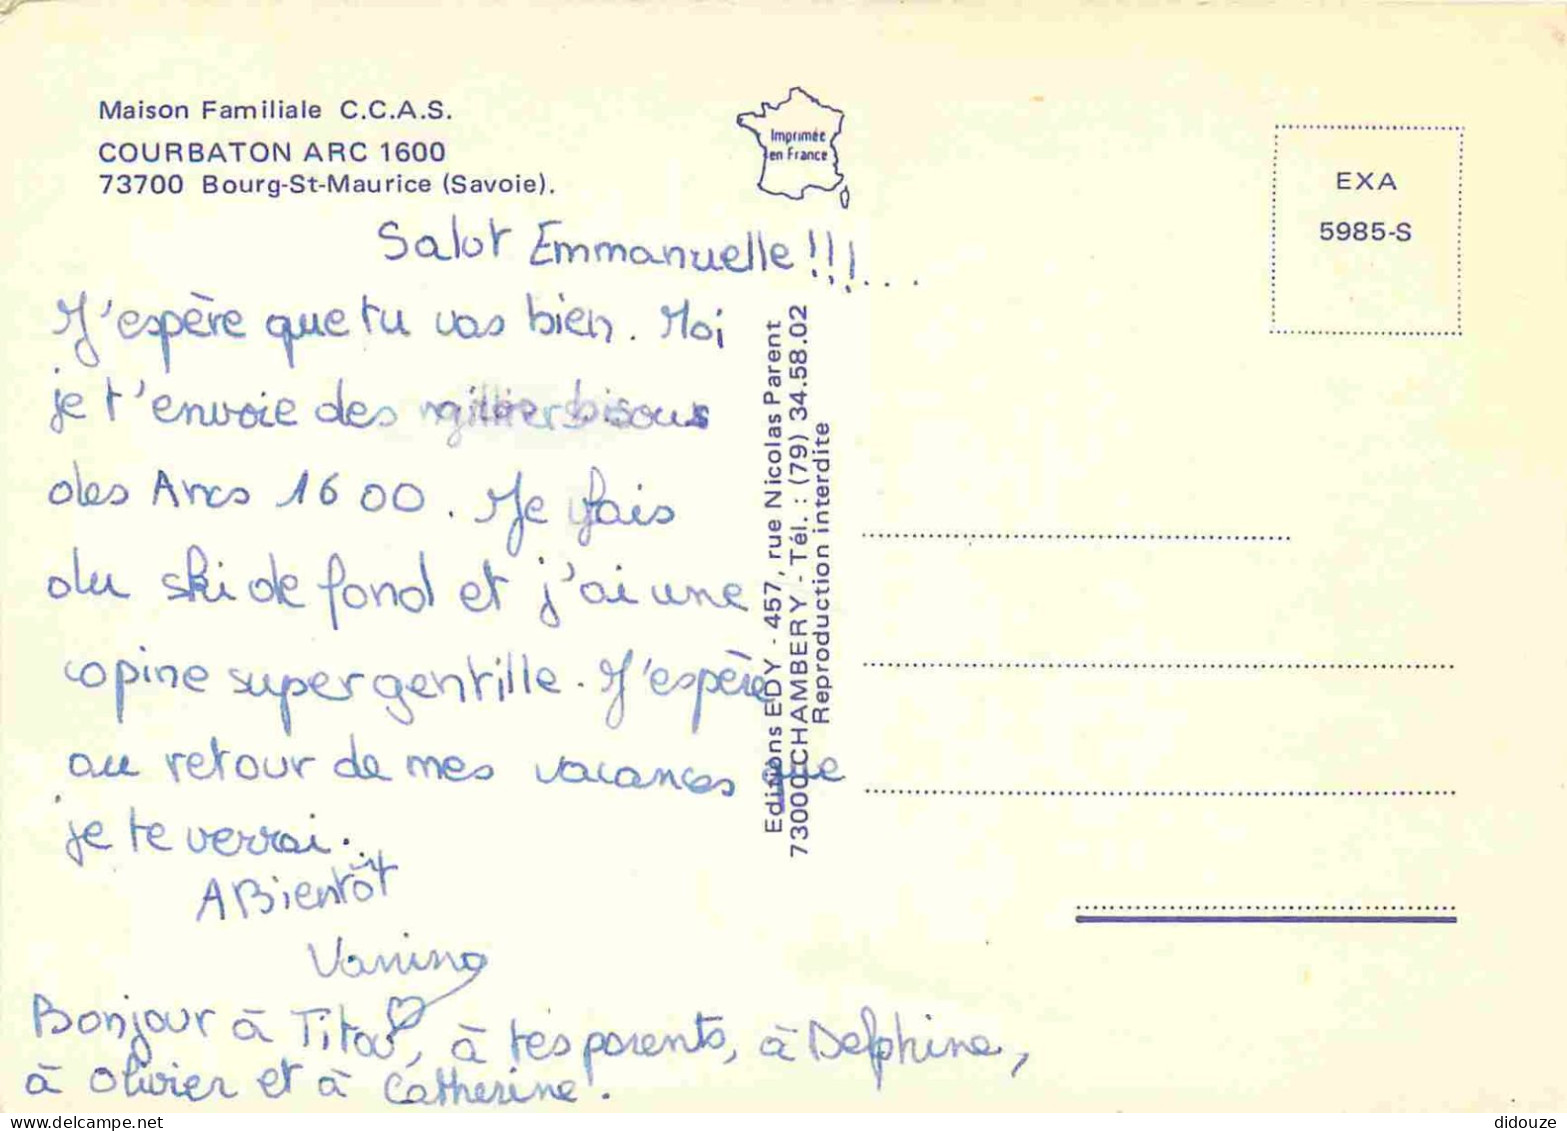 Maison Familiale C.C.A.S.
COURBATON ARC 1600
73700 Bourg-St-Maurice (Savoie).
Imprimée
en France
EXA
5985-S
Salut Emmanuelle !!!...
J'espère que tu vas bien. Moi
je t'envoie des bisous
des Arcs 1600. Je fais
du ski de fond et j'ai une
copine super gentille. J'espère
au retour de mes vacances que
je te verrai.
A Bientôt
Vanina
Bonjour à Titou, à tes parents, à Delphine,
à Olivier et à Catherine.
Editions EDY - 457, rue Nicolas Parent
73000 CHAMBERY - Tél. : (79) 34.58.02
Reproduction interdite
didouze